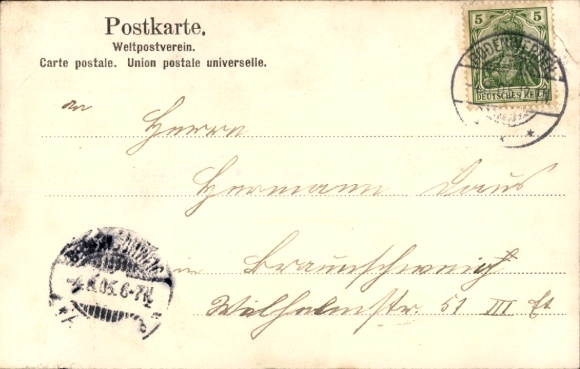 Postkarte.
Weltpostverein.
Carte postale. Union postale universelle.
5 5
DEUTSCHES REICH
An
Herrn
Hermann Daus
in Braunschweig
Wilhelmstr. 51 III Et
6-7N.